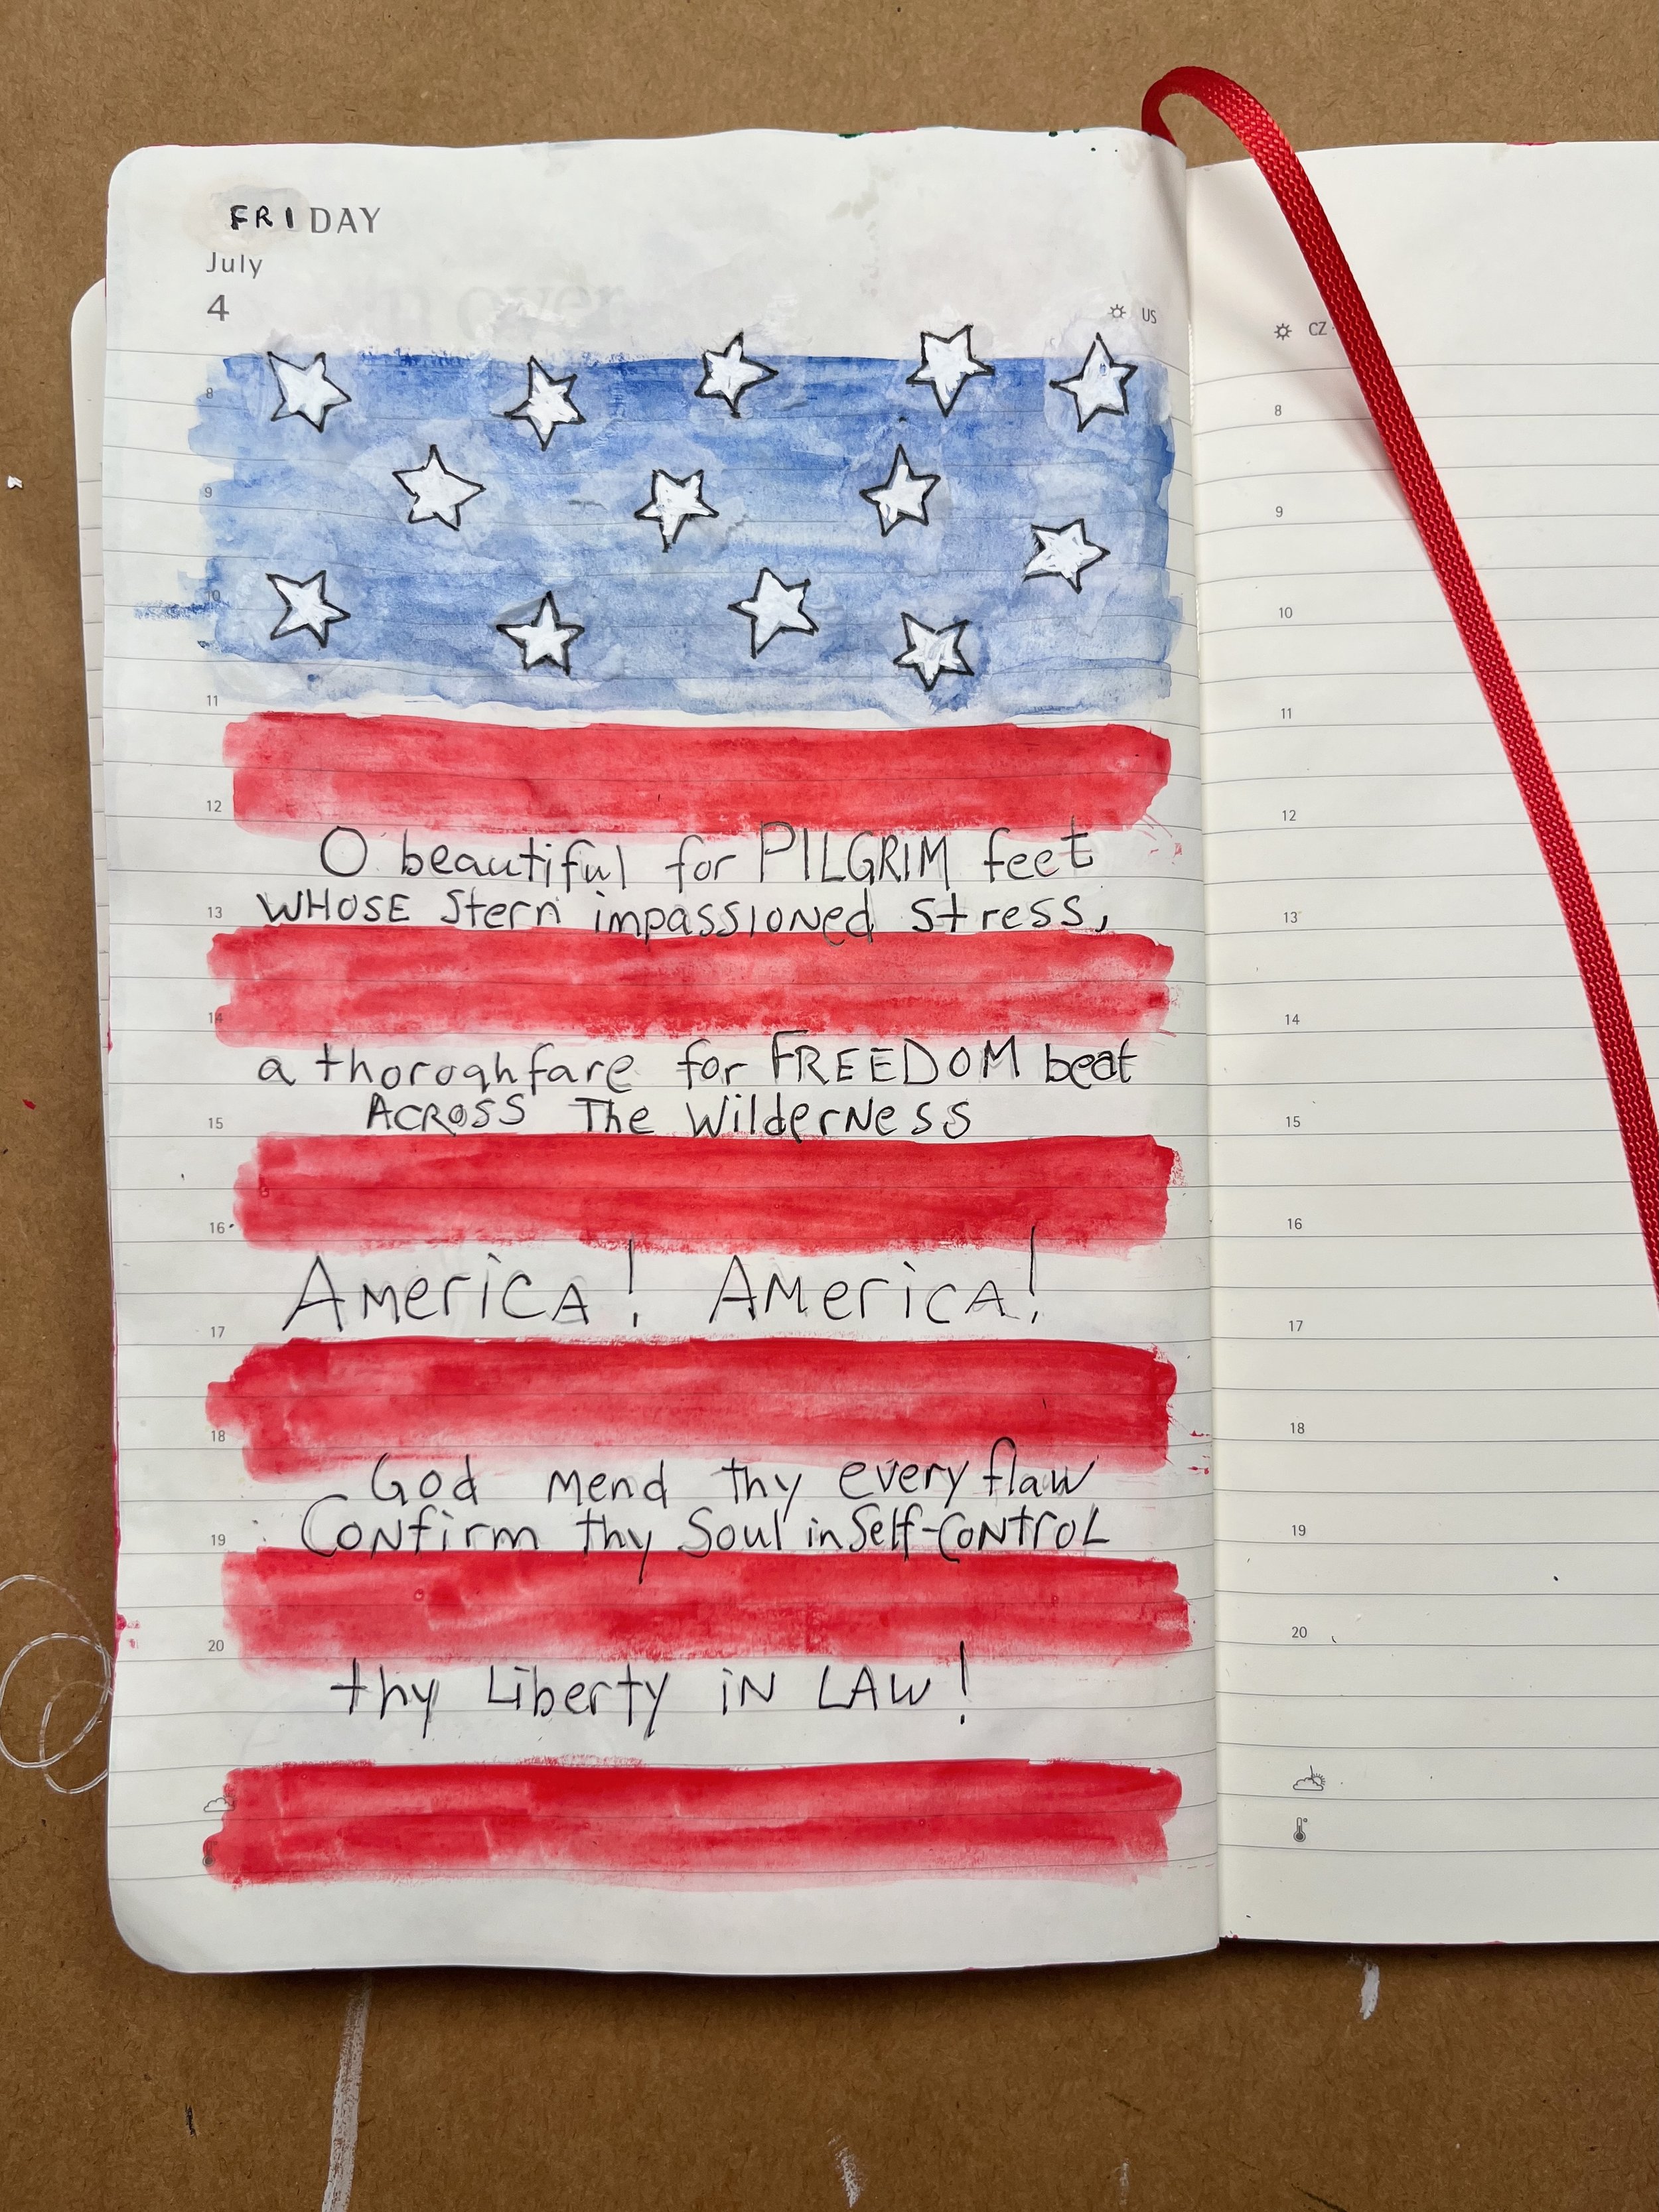 FRIDAY
July
4
US
8
9
10
11
12
O beautiful for PILGRIM feet
WHOSE Stern impassioned stress,
13
14
a thoroghfare for FREEDOM beat
ACROSS The Wilderness
15
16
America! America!
17
18
God mend thy every flaw
Confirm thy Soul in Self-Control
19
20
thy Liberty in LAW!
CZ
8
9
10
11
12
13
14
15
16
17
18
19
20